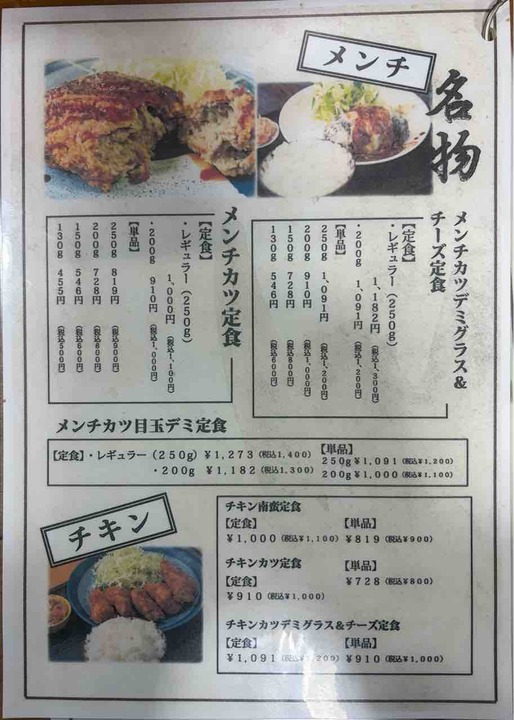 メンチ
名物
メンチカツデミグラス&
チーズ定食
【定食】
・レギュラー(250g)
1,182円(税込1,300円)
・200g 1,091円(税込1,200円)
【単品】
250g 1,091円(税込1,200円)
200g 910円(税込1,000円)
150g 728円(税込800円)
130g 546円(税込600円)
メンチカツ定食
【定食】
・レギュラー(250g)
1,000円(税込1,100円)
・200g 910円(税込1,000円)
【単品】
250g 819円(税込900円)
200g 728円
150g 546円(税込600円)
130g 455円(税込500円)
メンチカツ目玉デミ定食
【定食】・レギュラー(250g)¥1,273(税込1,400)
・200g ¥1,182(税込1,300)
【単品】
250g¥1,091(税込¥1,200)
200g¥1,000(税込¥1,100)
チキン
チキン南蛮定食
【定食】 【単品】
¥1,000(税込¥1,100) ¥819(税込¥900)
チキンカツ定食 【単品】
【定食】 ¥728(税込¥800)
¥910(税込¥1,000)
チキンカツデミグラス&チーズ定食
【定食】 【単品】
¥1,091(税込¥1,200) ¥910(税込¥1,000)